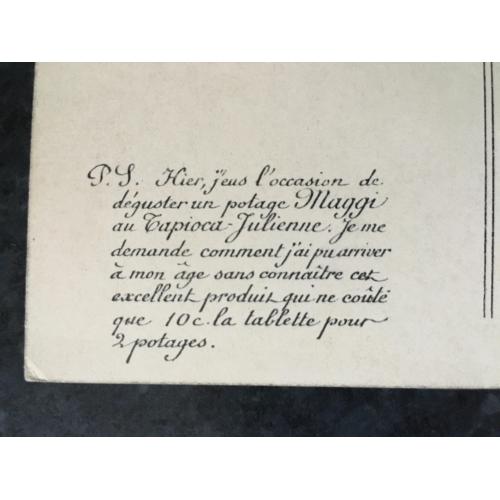 P.S. Hier, j'eus l'occasion de
déguster un potage Maggi
au Tapioca-Julienne. Je me
demande comment j'ai pu arriver
à mon âge sans connaître cet
excellent produit qui ne coûte
que 10 c. la tablette pour
2 potages.